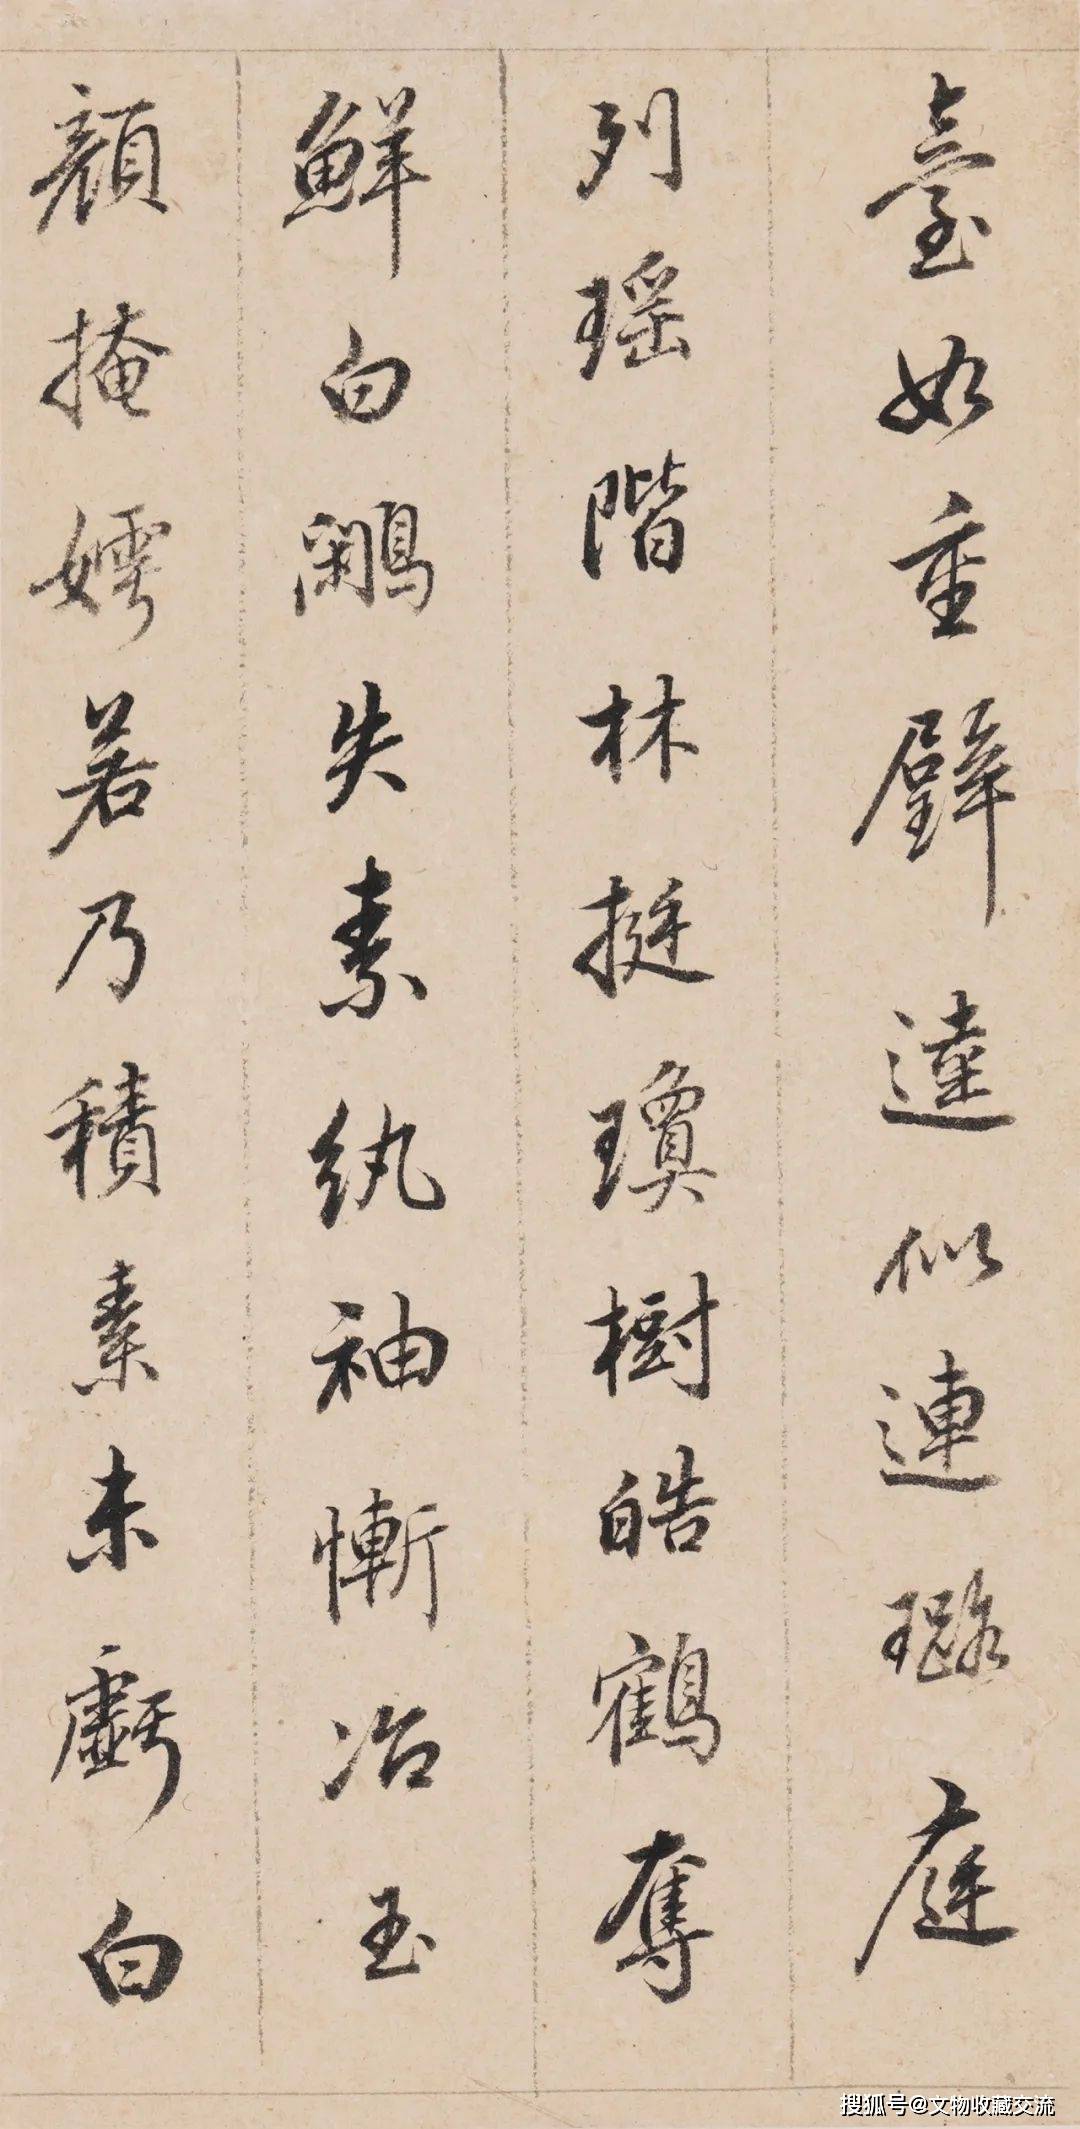 臺如重璧逵似連璐庭
列瑶階林挺瓊樹皓鶴奪
鮮白鷳失素紈袖慚冶玉
顔掩嫮若乃積素未虧白
搜狐号@文物收藏交流